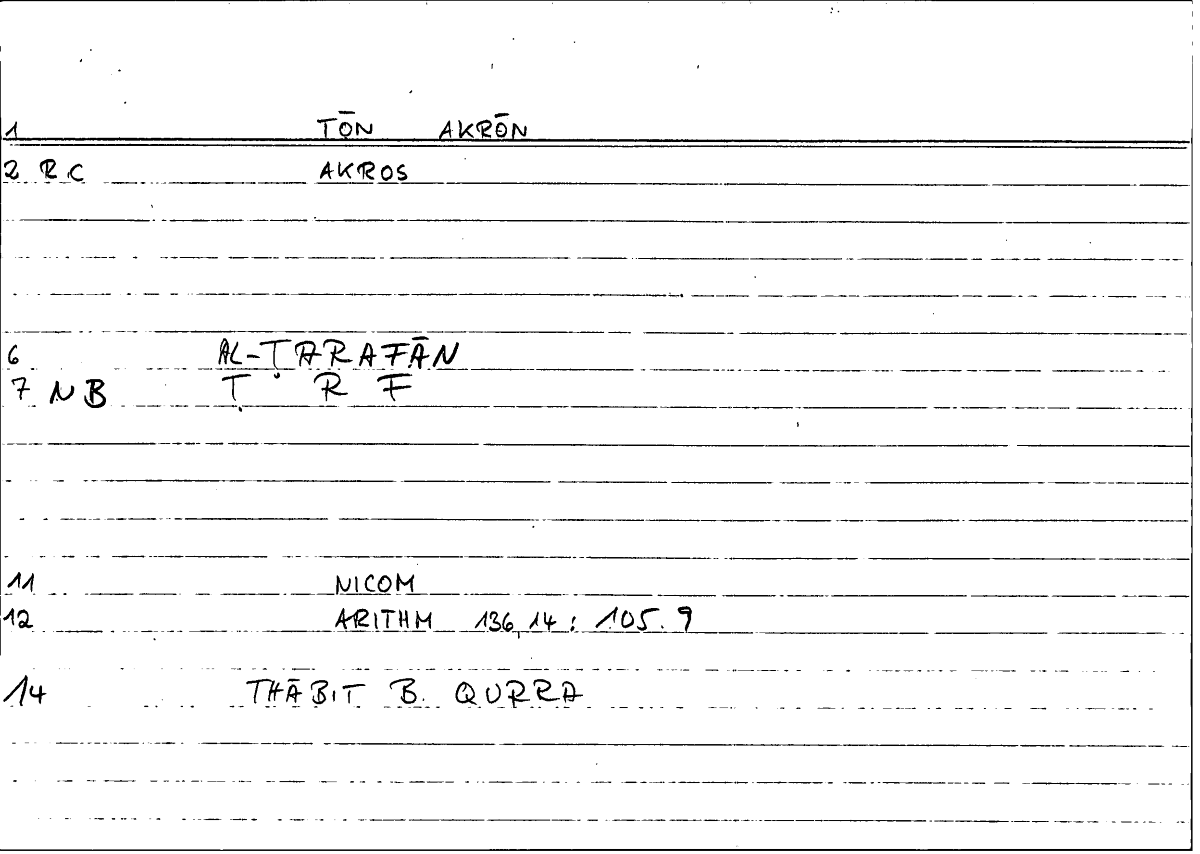 1 TŌN AKRŌN
2 R.C AKROS
6 AL-ṬARAFĀN
7 NB Ṭ R F
11 NICOM
12 ARITHM 136,14: 105.9
14 THĀBIT B. QURRA